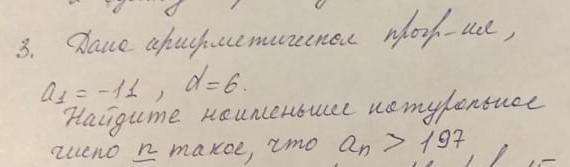 3. Дана арифметическая прогр-ия,
a₁ = -11, d=6.
Найдите наименьшее натуральное
число n такое, что aₙ > 197